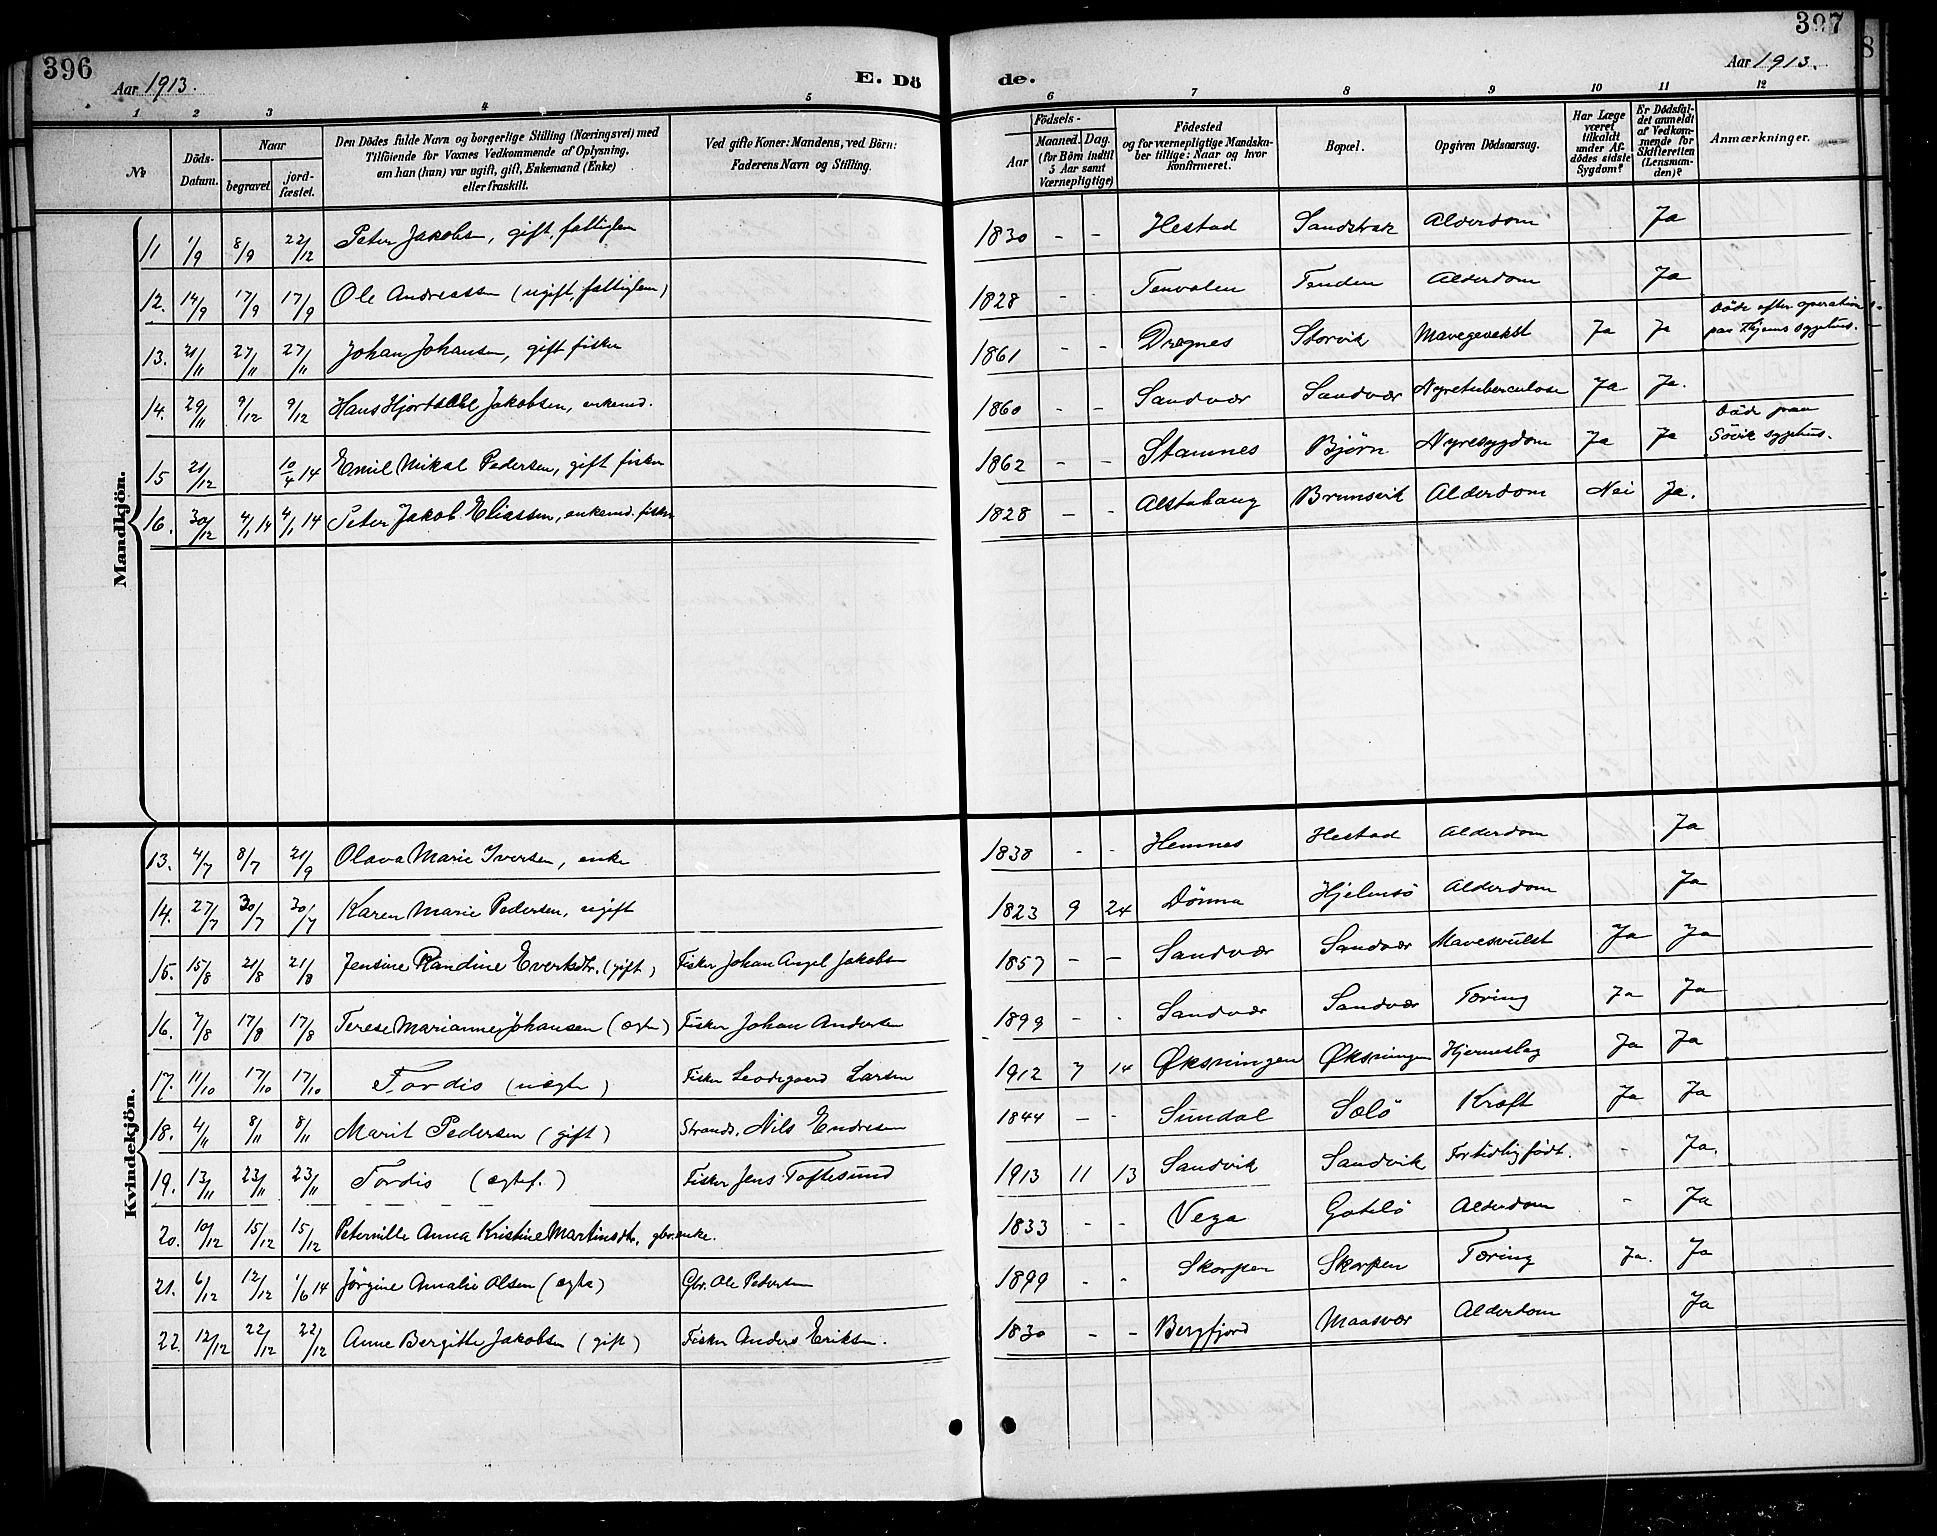 396
Aar 1913.
E. Dö
de.
397
Aar 1913.
8
1 2 3 4 5 6 7 8 9 10 11 12
№
Döds-Datum.
Naar
begravet.
jord-fæstet.
Den Dödes fulde Navn og borgerlige Stilling (Næringsvei) med
Tilföiende for Voxnes Vedkommende af Oplysning,
om han (hun) var ugift, gift, Enkemand (Enke)
eller fraskilt.
Ved gifte Koner: Mandens, ved Börn:
Faderens Navn og Stilling.
Födsels-
Aar
Maaned. Dag.
(for Börn indtil
5 Aar samt
Værnepligtige)
Födested
og for værnepligtige Mandska-
ber tillige: Naar og hvor
konfirmeret.
Bopæl.
Opgiven Dödsaarsag.
Har Læge
været
tilkaldt
under Af-
dödes sidste
Sygdom?
Er Dödsfal-
det anmeldt
af Vedkom-
mende for
Skifteretten
(Lensman-
den)?
Anmærkninger.
Mandkjön.
11 1/9 8/9 22/12 Peter Jakobsen, gift, fattiglem 1830 - - Hestad Sandstrak Alderdom Ja
12. 14/9 17/9 17/9 Ole Andreassen (ugift, fattiglem) 1828 - - Tenvalen Tenden Alderdom Ja
13. 21/11 27/11 27/11 Johan Johansen, gift fisker 1861 - - Dregnes Storvik Mavegevekst Ja Ja Döde efter operation paa sygehus.
14. 29/11 9/12 9/12 Hans Hjortdahl Jakobsen, enkemd. 1860 - - Sandvær Sandvær Nyretuberculose Ja Ja.
15 21/12 10/4 14 Emil Mikal Pedersen, gift fisker 1862 - - Stamnes Bjørn Nyresygdom Ja Ja Döde paa Sövik sygehus.
16. 30/12 4/1 14 4/1 14 Peter Jakob Eliassen, enkemd. fisker 1828 - - Alstahaug Brunsvik Alderdom Nei Ja.
Kvindekjön.
13. 4/7 8/7 21/9 Olava Marie Iversen, enke 1838 - - Hemnes Hestad Alderdom Ja
14. 27/7 30/7 30/7 Karen Marie Pedersen, ugift 1823 9 24 Dønna Hjelmsö Alderdom Ja
15. 15/8 21/8 21/8 Jensine Randine Evertsdtr. (gift) Fisker Johan Angel Jakobsen 1857 - - Sandvær Sandvær Mavesvulst Ja Ja
16. 7/8 17/8 17/8 Terese Marianne Johansen (egte) Fisker Johan Andersen 1899 - - Sandvær Sandvær Tæring Ja Ja
17. 11/10 17/10 17/10 Tordis (uegte) Fisker Leodegaard Larsen 1912 7 14 Øksningen Øksningen Hjerneslag Ja Ja
18. 4/11 8/11 8/11 Marit Pedersen (gift) Strands. Nils Endresen 1844 - - Sundal Sælö Kræft Ja Ja
19. 13/11 23/11 23/11 Tordis (egtef.) Fisker Jens Toftesund 1913 11 13 Sandvik Sandvik For tidlig født. - Ja.
20. 10/12 15/12 15/12 Peternille Anna Kristine Martinsdtr, gbr.enke. 1833 - - Vega Gotslö Alderdom - Ja
21. 6/12 12/12 1/6 14 Jörgine Amalie Olsen (egte) Gbr. Ole Pedersen 1899 - - Skorpen Skorpen Tæring Ja. Ja
22. 12/12 22/12 22/12 Anne Bergitte Jakobsen (gift) Fisker Anders Eriksen. 1830 - - Bergfjord Maasvær Alderdom Ja